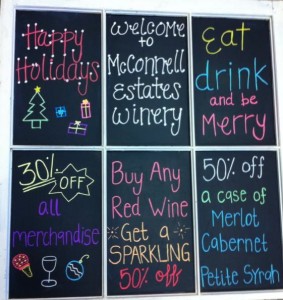 Happy
Holidays
Welcome
to
McConnell
Estates
Winery
Eat
drink
and be
Merry
30%
OFF
all
merchandise
Buy Any
Red Wine
Get a
SPARKLING
50% off
50% off
a case of
Merlot
Cabernet
Petite Syrah